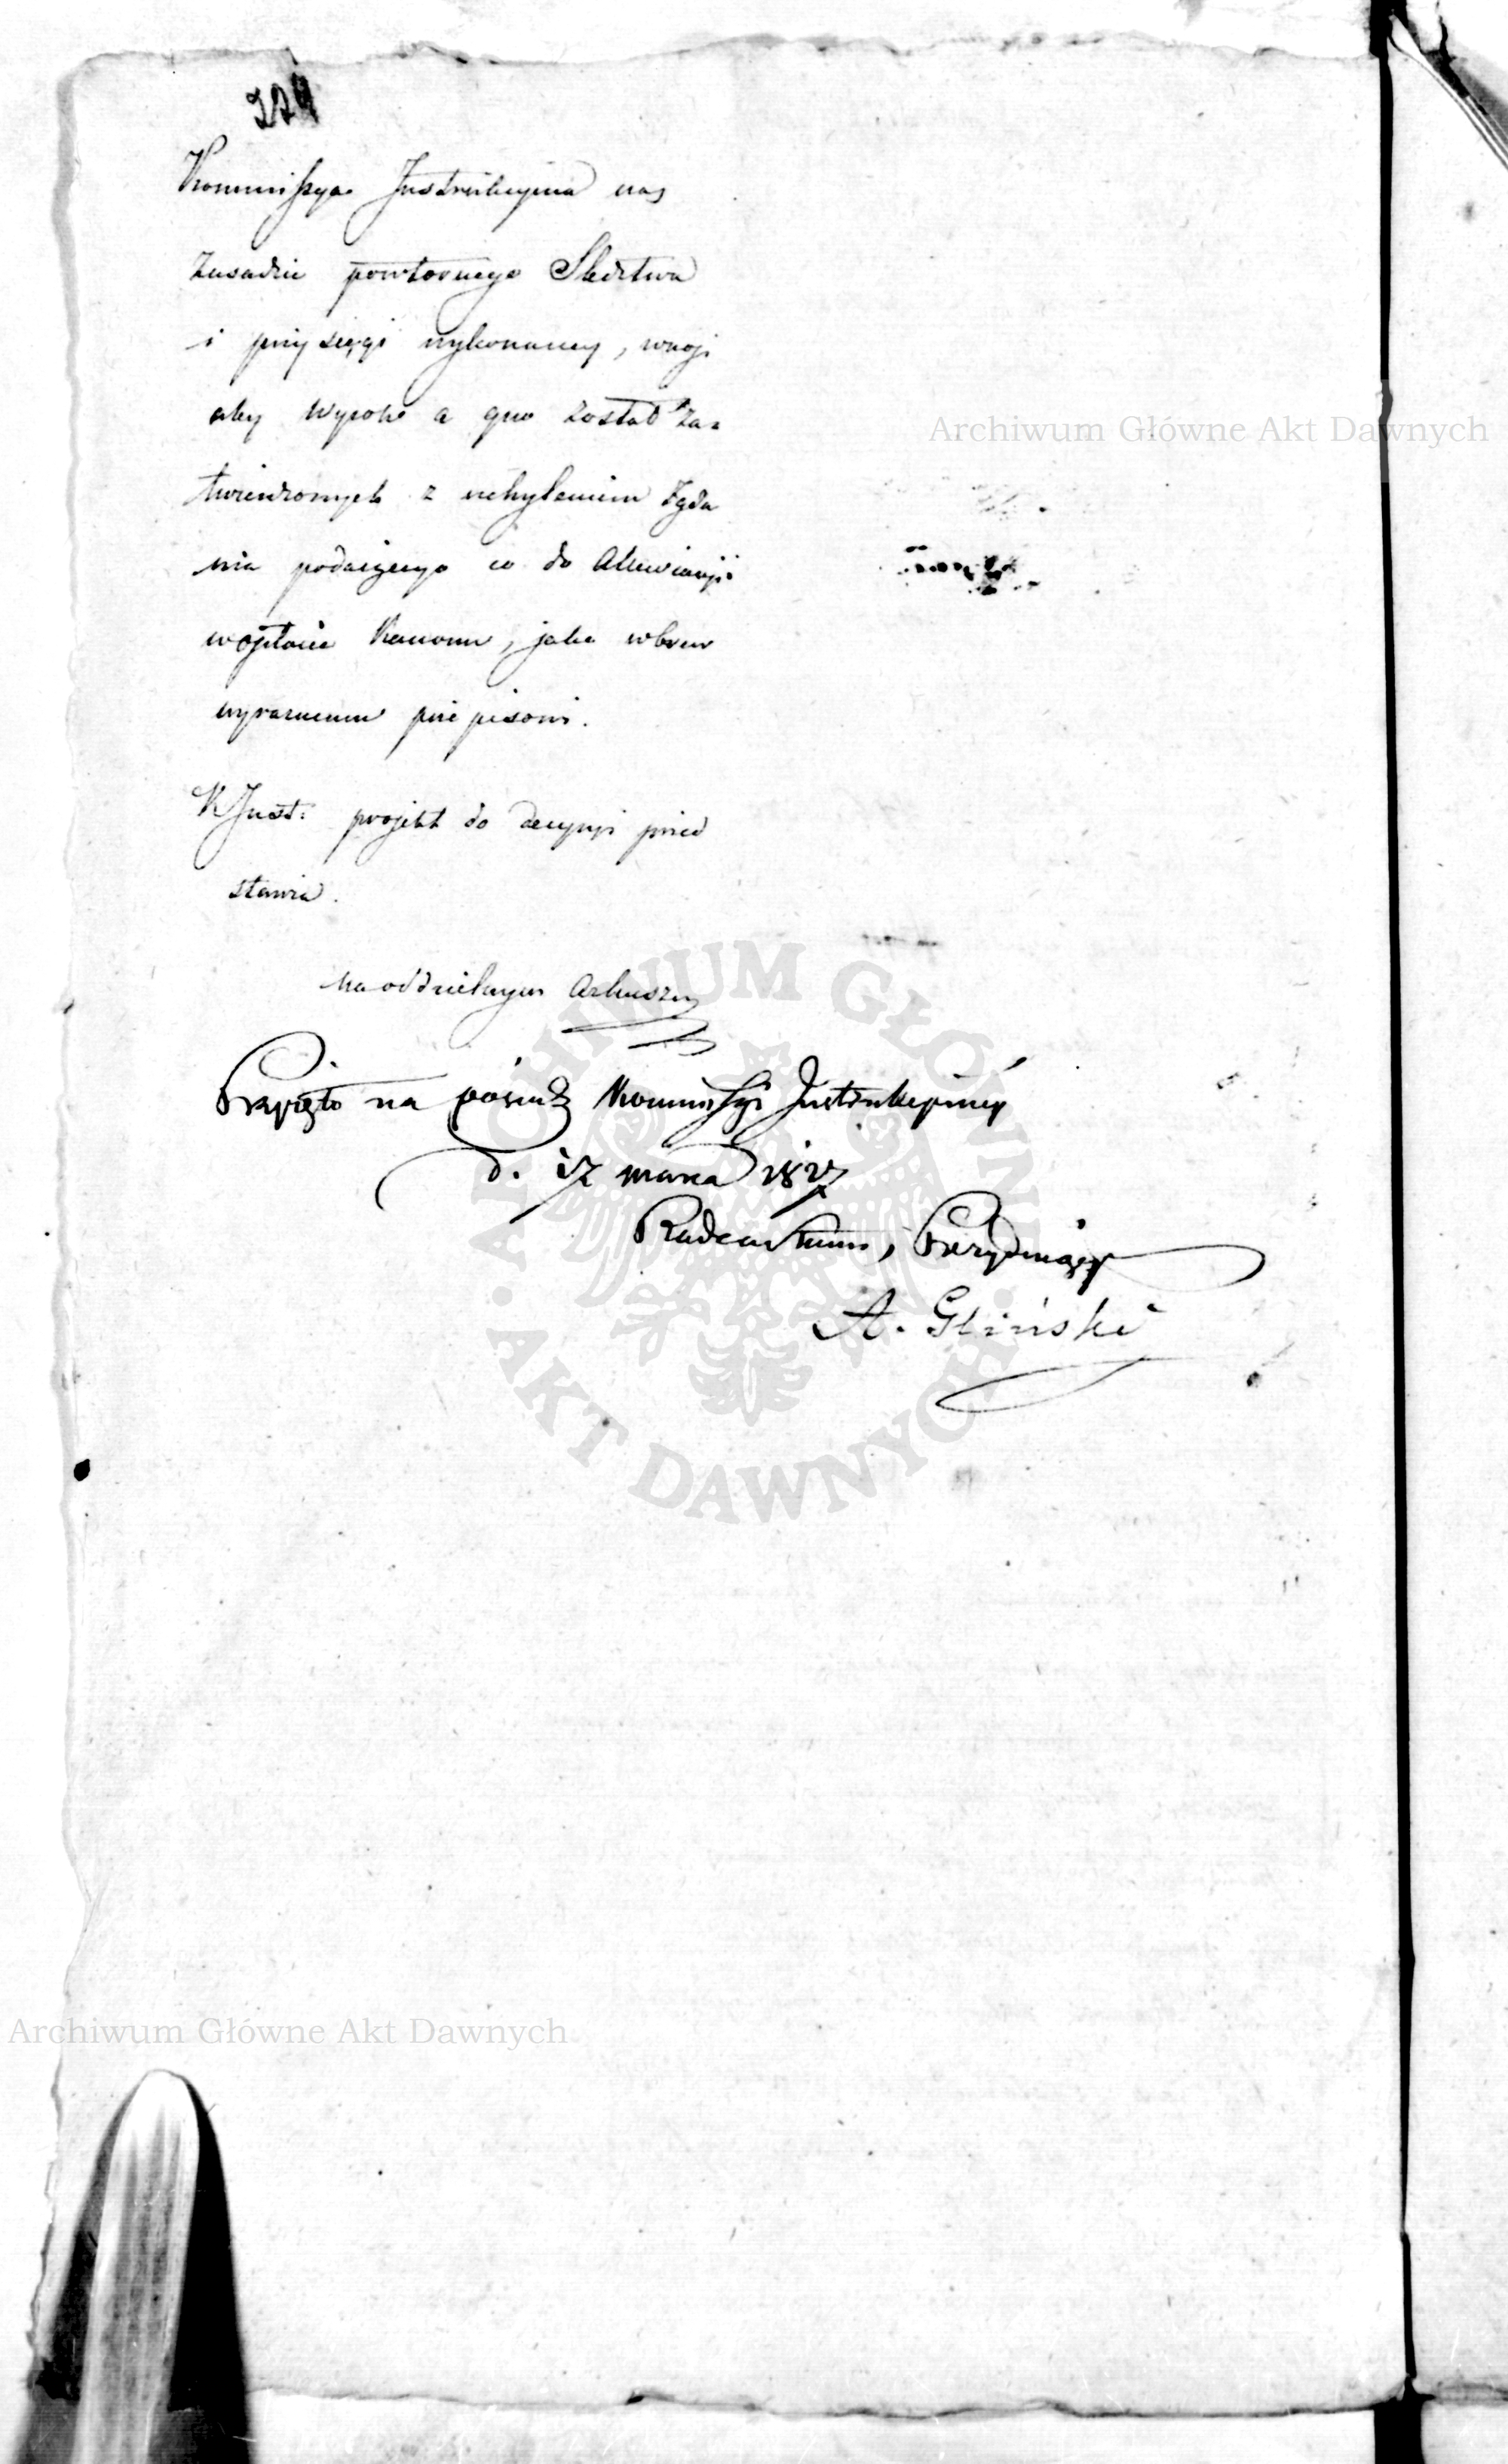 324
Kommissya Instrukcyina na
zasadzie powtornego Sledztwa
i przysięgi wykonaney, wnosi
aby wyrok a quo został za=
twierdzonych z uchyleniem żąda
nia podaiącego co do
Kanonu, jako wbrew
wyraznemu przepisowi.
K Inst: projekt do decyzyi przed
stawia.
na oddzielnym Arkuszu
Przyięto na posiedz Kommissyi Instrukcyiney
d. 17 marca 1827
Radca Stanu, Prezyduiący
A. Gliński
Archiwum Główne Akt Dawnych
ARCHIWUM GŁÓWNE · AKT DAWNYCH ·
Archiwum Główne Akt Dawnych